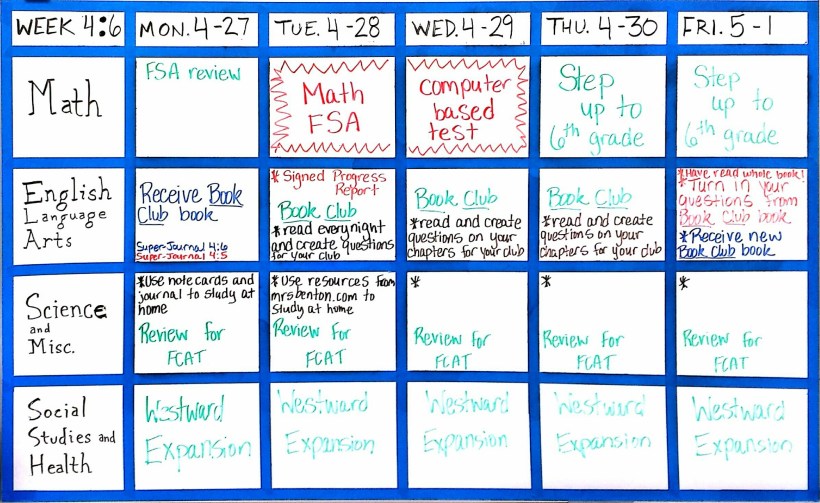 WEEK 4:6
MON. 4-27
TUE. 4-28
WED. 4-29
THU. 4-30
FRI. 5-1
Math
FSA review
Math
FSA
computer
based
test
Step
up to
6th grade
Step
up to
6th grade
English
Language
Arts
Receive Book
Club book
Super-Journal 4:6
Super-Journal 4:5
* Signed Progress
Report
Book Club
* read every night
and create questions
for your club
Book Club
*read and create
questions on your
chapters for your club
Book Club
*read and create
questions on your
chapters for your club
*Have read whole book!
*Turn in your
questions from
Book Club book
*Receive new
Book Club book
Science
and
Misc.
*Use notecards and
journal to study at
home
Review for
FCAT
*Use resources from
mrsbenton.com to
study at home
Review for
FCAT
*
Review for
FCAT
*
Review for
FCAT
*
Review for
FCAT
Social
Studies and
Health
Westward
Expansion
Westward
Expansion
Westward
Expansion
Westward
Expansion
Westward
Expansion